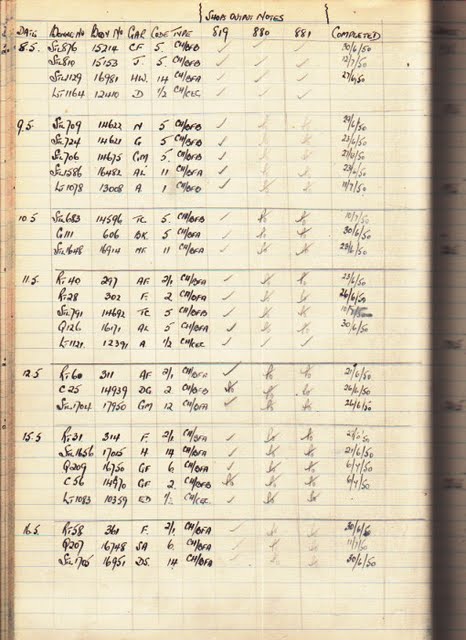 SHOPS OUTPUT NOTES
DATE BONNET NO BODY NO GAR CODE TYPE 819 880 881 COMPLETED
8.5. STL876 15214 CF 5 CH/BFB ✓ ✓ ✓ 30/6/50
STL810 15153 J 5 CH/BFB ✓ ✓ ✓ 12/7/50
STL1129 16981 HW. 14 CH/BFA ✓ ✓ ✓ 27/6/50
LT1164 12410 D 1/2 CH/CEC ✓ ✓ ✓
9.5 STL709 14622 N 5 CH/BFB ✓
STL724 14621 G 5 CH/BFB ✓ 23/6/50
STL706 14675 GM 5 CH/BFB ✓
STL1586 16482 AL 11 CH/BFA ✓ 23/6/50
LT1078 13008 A 1 CH/BFD ✓ 11/7/50
10.5 STL683 14596 TC 5 CH/BFB ✓ 10/7/50
G111 606 BK 5 CH/BFB ✓ 30/6/50
STL1648 16914 NF 11 CH/BFA ✓ 29/6/50
11.5 RT40 297 AF 2/1 CH/BFA ✓ 23/6/50
RT28 302 F. 2 CH/BFA ✓ 26/6/50
STL791 14692 TC 5 CH/BFB ✓
Q126 16171 AL 5 CH/BFA ✓ 30/6/50
LT1121 12391 A 1/2 CH/CEC ✓
12.5 RT60 311 AF 2/1 CH/BFA ✓ 21/6/50
C25 14939 DG 2 CH/BFB 26/6/50
STL1704 17950 GM 12 CH/BFA ✓ 26/6/50
15.5 RT31 314 F. 2/1 CH/BFA ✓
STL1656 17005 H 14 CH/BFA ✓ 21/6/50
Q209 16750 GF 6 CH/BFA ✓ 6/7/50
C56 14970 GF 2 CH/BFB 6/7/50
LT1083 10359 ED 1/2 CH/CEC ✓
16.5 RT58 361 F. 2/1 CH/BFA ✓ 30/6/50
Q207 16748 SA 6 CH/BFA ✓ 11/7/50
STL1705 16951 DS. 14 CH/BFA ✓ 30/6/50